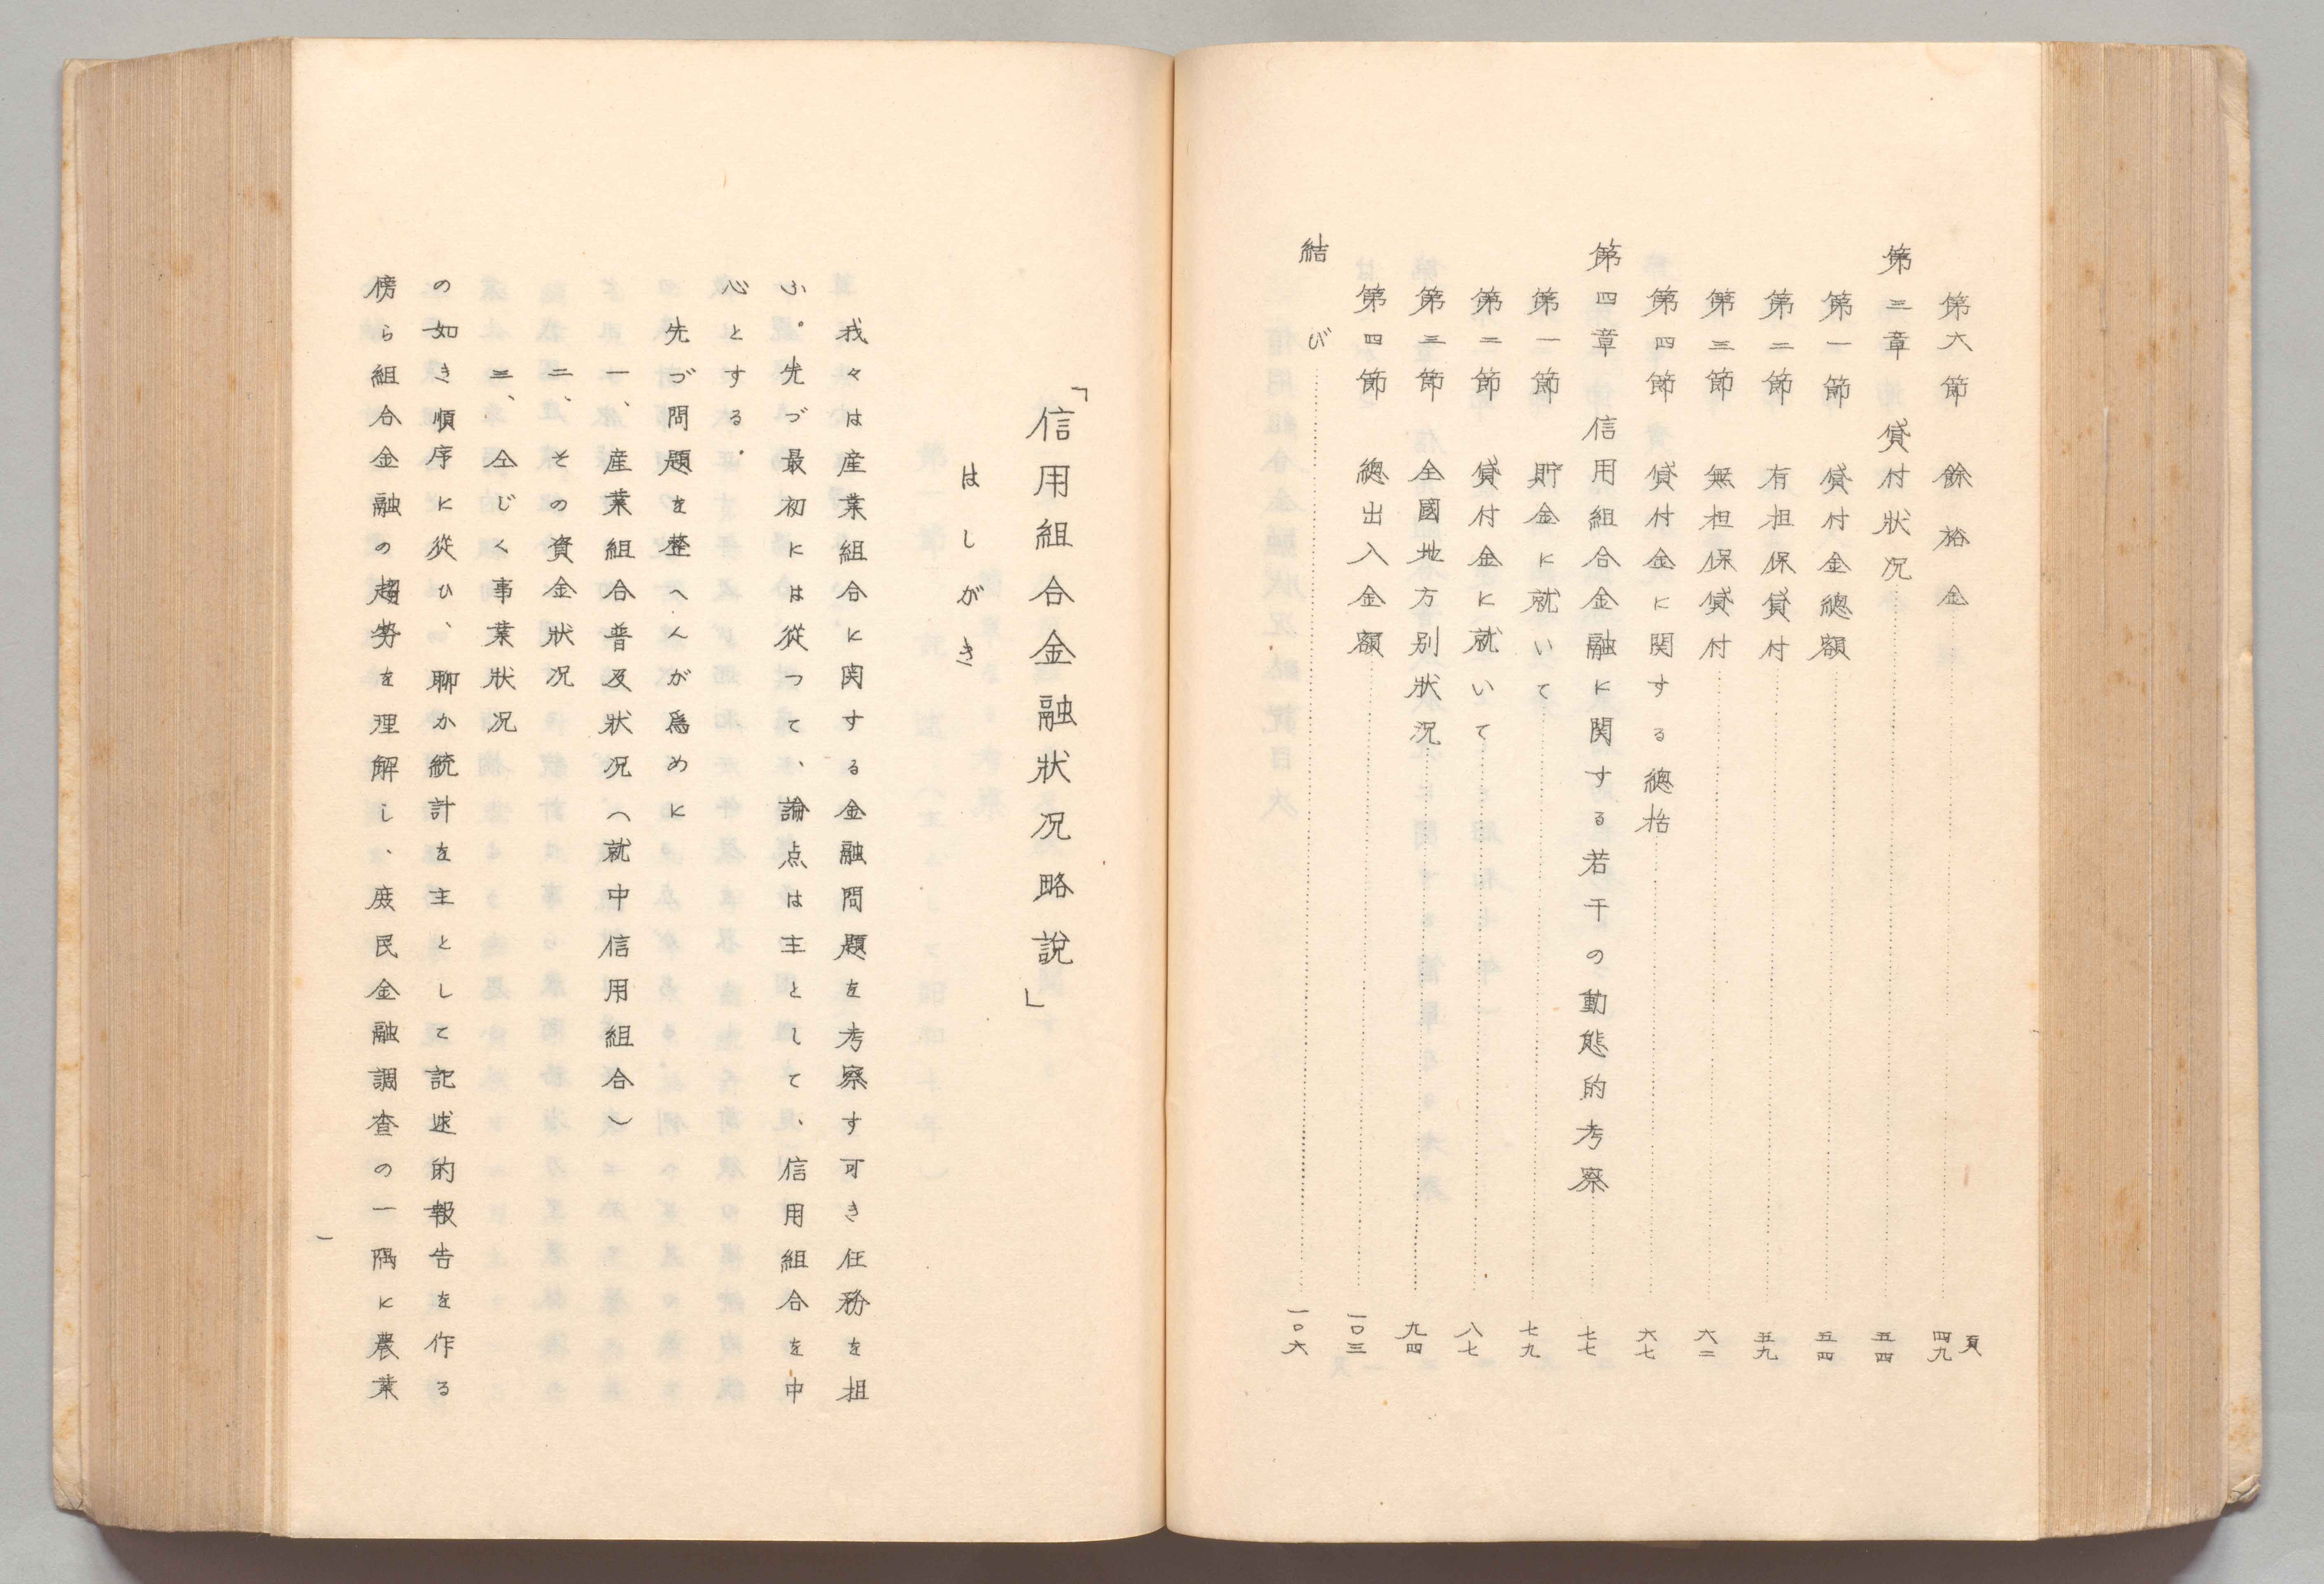 第六節　餘裕金……四九頁
第三章　貸付狀况……五四
第一節　貸付金總額……五四
第二節　有担保貸付……五九
第三節　無担保貸付……六二
第四節　貸付金に関する總括……六七
第四章　信用組合金融に関する若干の動態的考察……七七
第一節　貯金に就いて……七九
第二節　貸付金に就いて……八七
第三節　全國地方別狀況……九四
第四節　總出入金額……一〇三
結び……一〇六
「信用組合金融狀况略說」
はしがき
我々は産業組合に関する金融問題を考察す可き任務を担
ふ。先づ最初には從つて、論点は主として、信用組合を中
心とする.
先づ問題を整へんが爲めに
一、産業組合普及狀况（就中信用組合）
二、その資金狀况
三、仝じく事業狀况
の如き順序に從ひ、聊か統計を主として記述的報告を作る
傍ら組合金融の趨勢を理解し、庶民金融調査の一隅に農業
一